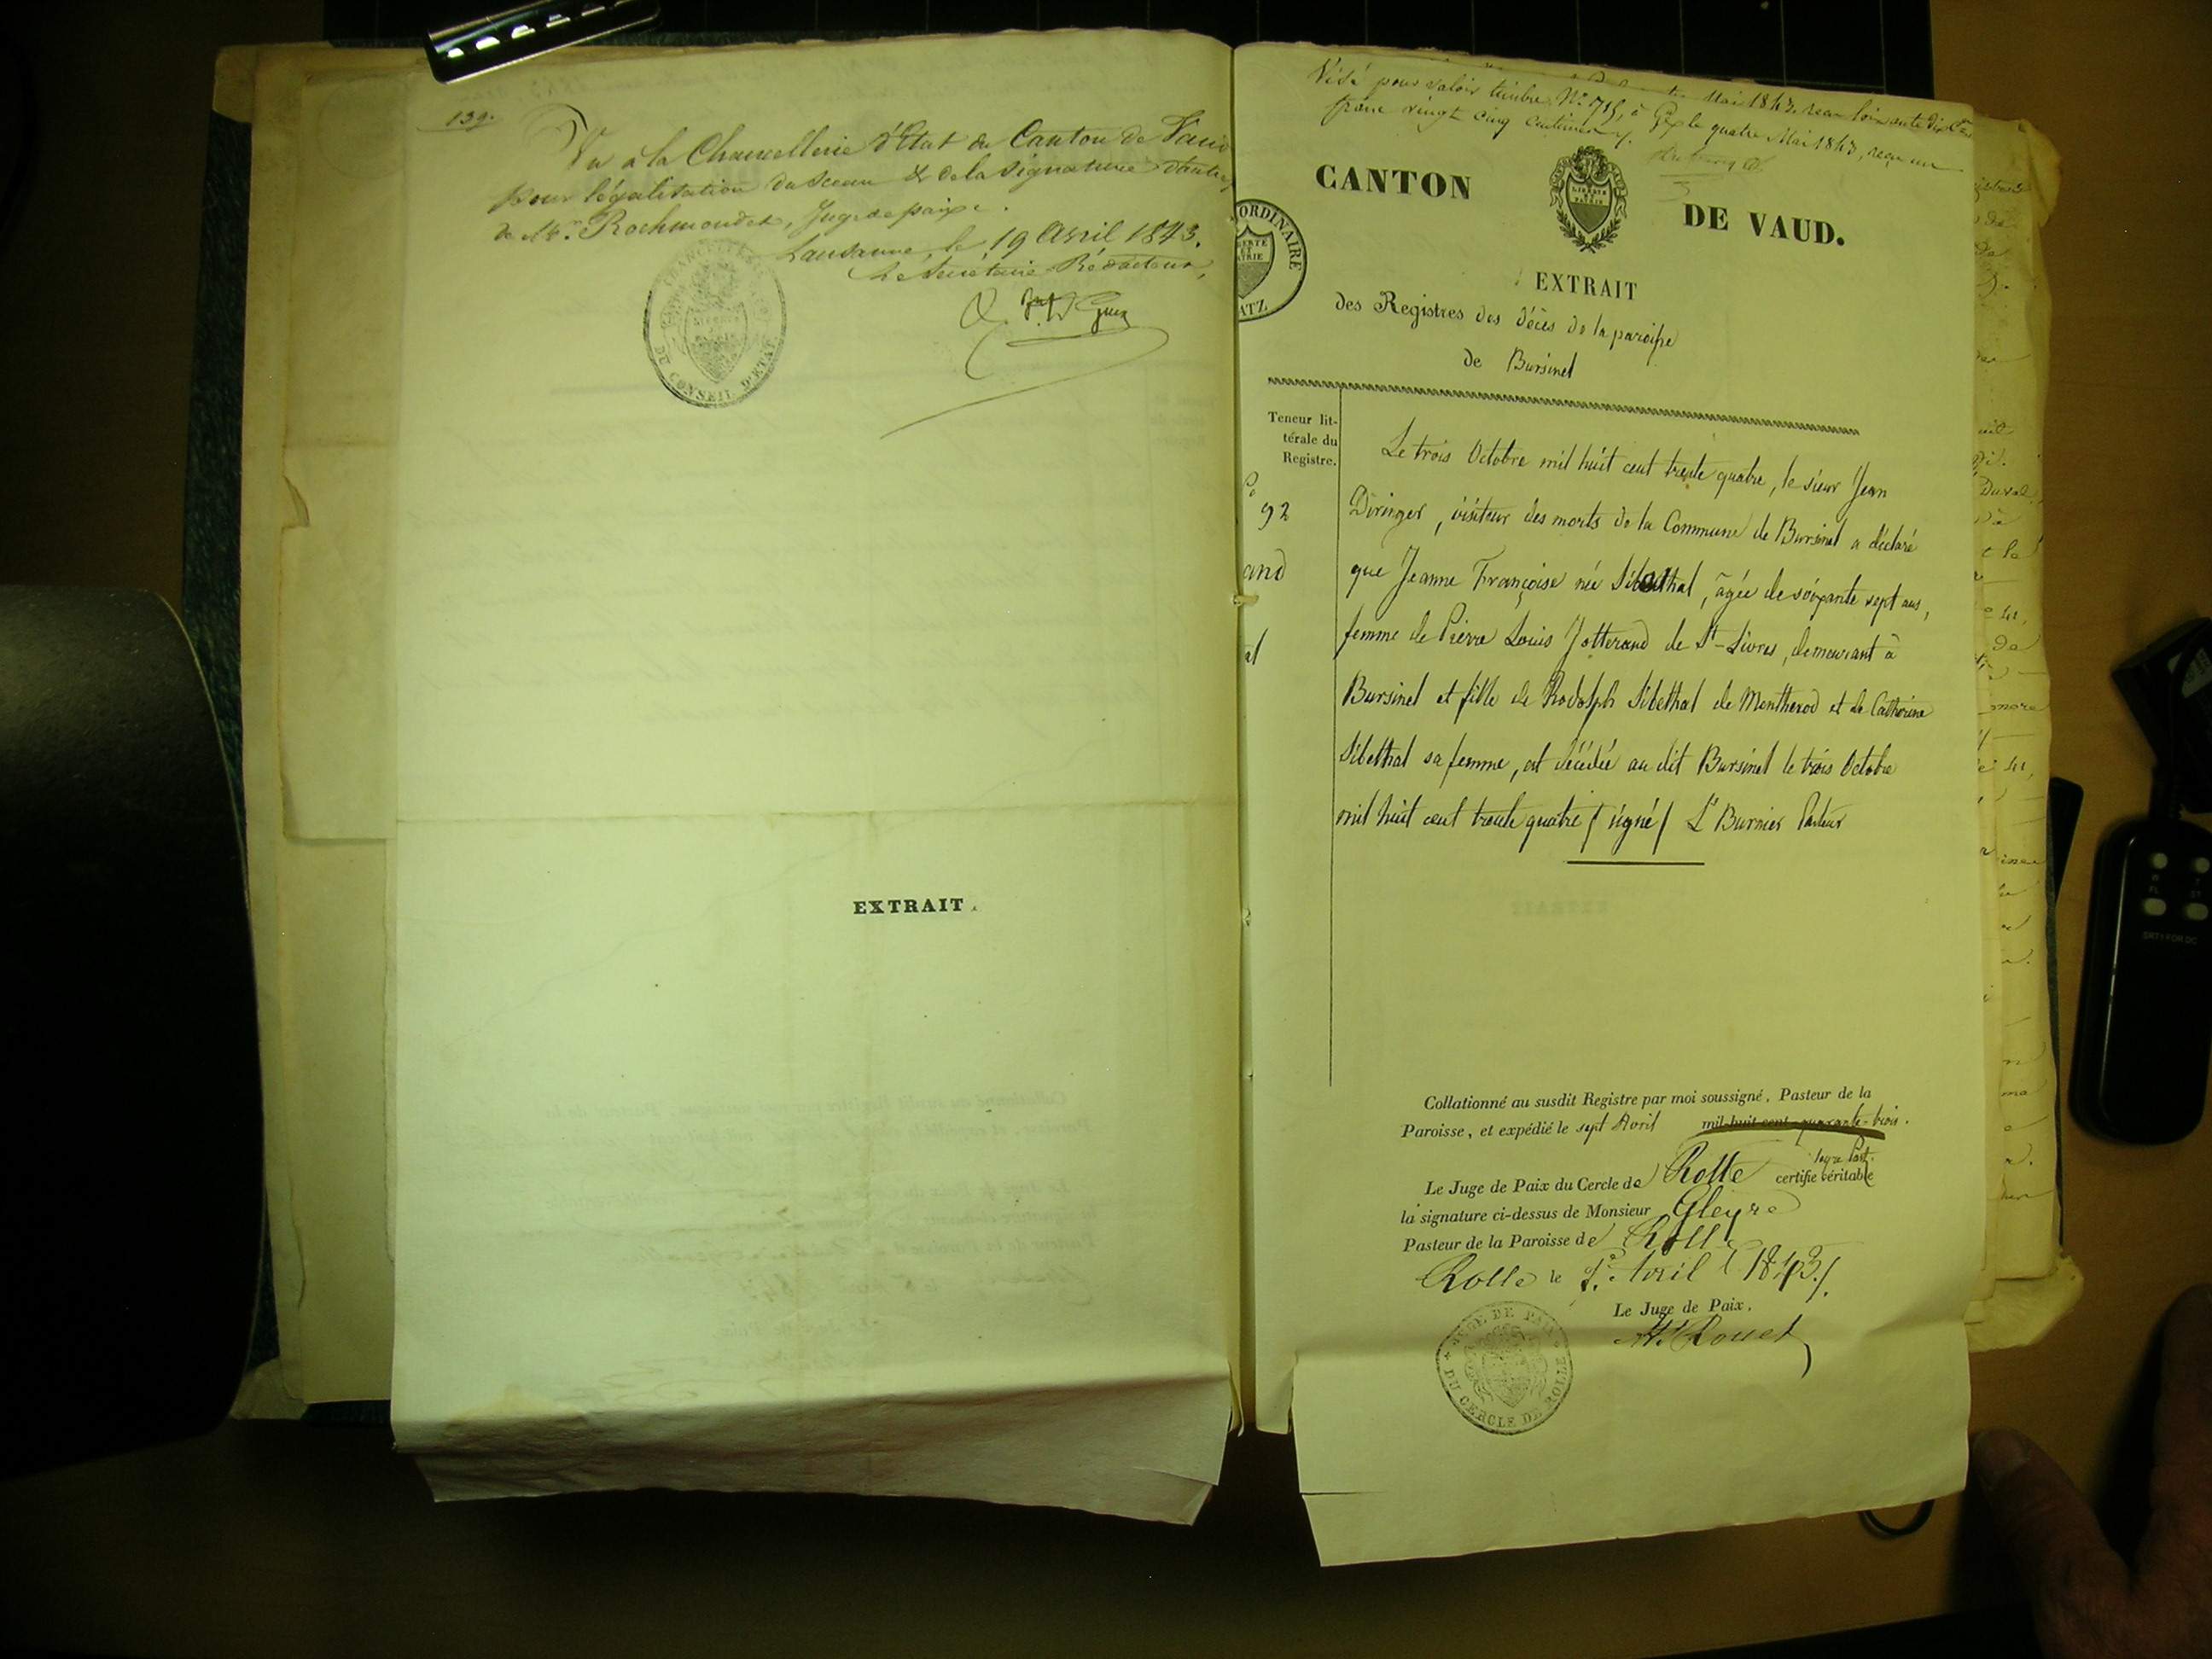 139.
Vu à la Chancellerie d'Etat du Canton de Vaud
pour légalisation du sceau & de la signature d'autre
de Mr. Rochmondet, Juge de paix.
Lausanne, le 19 Avril 1843.
Le Secrétaire Rédacteur,
DU CONSEIL D'ETAT
EXTRAIT.
Visé pour valoir timbre, No. 715, à Gex le quatre Mai 1843, reçu un
franc vingt cinq centimes
CANTON DE VAUD.
LIBERTÉ ET PATRIE
ORDINAIRE
BATZ
EXTRAIT
des Registres des décès de la paroisse
de Bursinel
Teneur lit-
térale du
Registre.
92
and
al
Le trois Octobre mil huit cent trente quatre, le sieur Jean
Diringer, visiteur des morts de la Commune de Bursinel a déclaré
que Jeanne Françoise née Sibelthal, âgée de soixante sept ans,
femme de Pierre Louis Jotterand de St-Livres, demeurant à
Bursinel et fille de Rodolph Sibethal de Montherod et de Catherine
Sibethal sa femme, est décédée au dit Bursinel le trois Octobre
mil huit cent trente quatre / signé / L. Burnier Pasteur
Collationné au susdit Registre par moi soussigné, Pasteur de la
Paroisse, et expédié le sept Avril mil-huit-cent-quarante-trois.
Le Juge de Paix du Cercle de Rolle certifie véritable
la signature ci-dessus de Monsieur Gleyre
Pasteur de la Paroisse de Rolle
Rolle le 7e. Avril 1843.
Le Juge de Paix,
JUGE DE PAIX DU CERCLE DE ROLLE